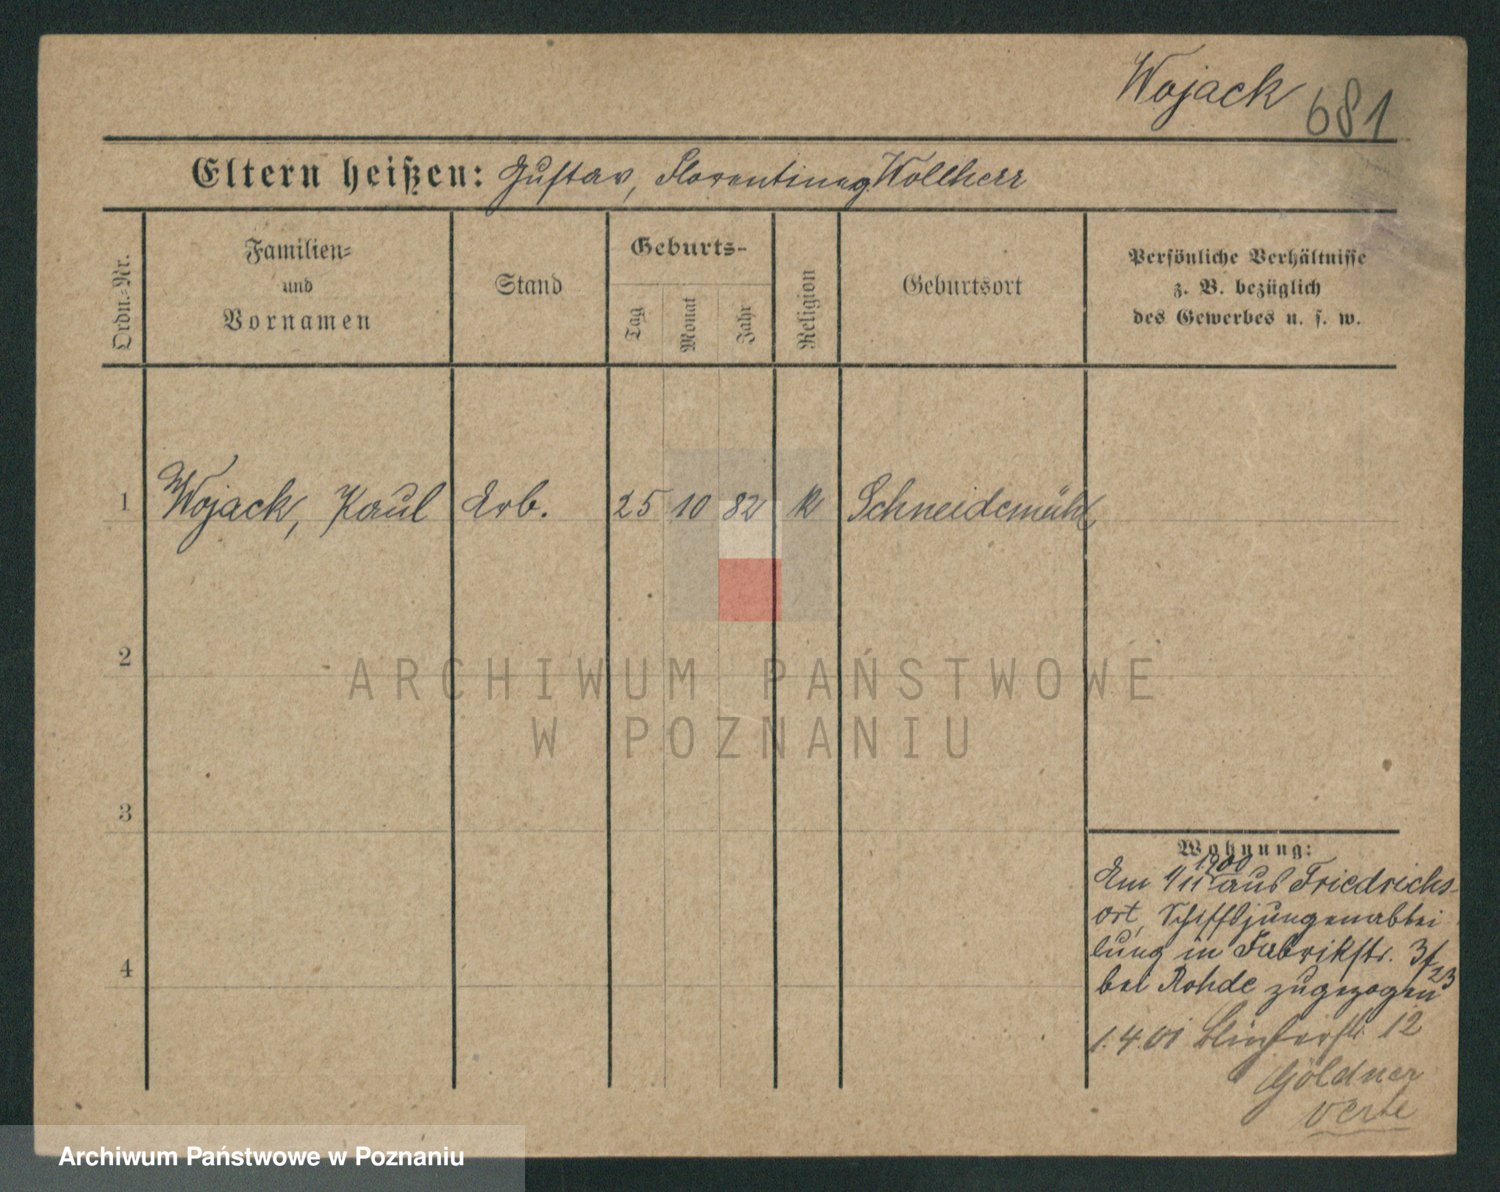 Wojack 681
Eltern heißen: Gustav, Florentine g. Wollherr
Ordn.-Nr.
Familien-
und
Vornamen
Stand
Geburts-
Tag
Monat
Jahr
Religion
Geburtsort
Persönliche Verhältnisse
z. B. bezüglich
des Gewerbes u. s. w.
1 Wojack, Paul Arb. 25 10 82 k Schneidemühl
2
3
4
Wohnung:
1900
Am 4/11 aus Friedrichs-
ort, Schiffsjungenabtei
lung in Fabrikstr. 3
bei Rohde zugezogen
1.4.01 12
Göldner
verte
ARCHIWUM PAŃSTWOWE
W POZNANIU
Archiwum Państwowe w Poznaniu